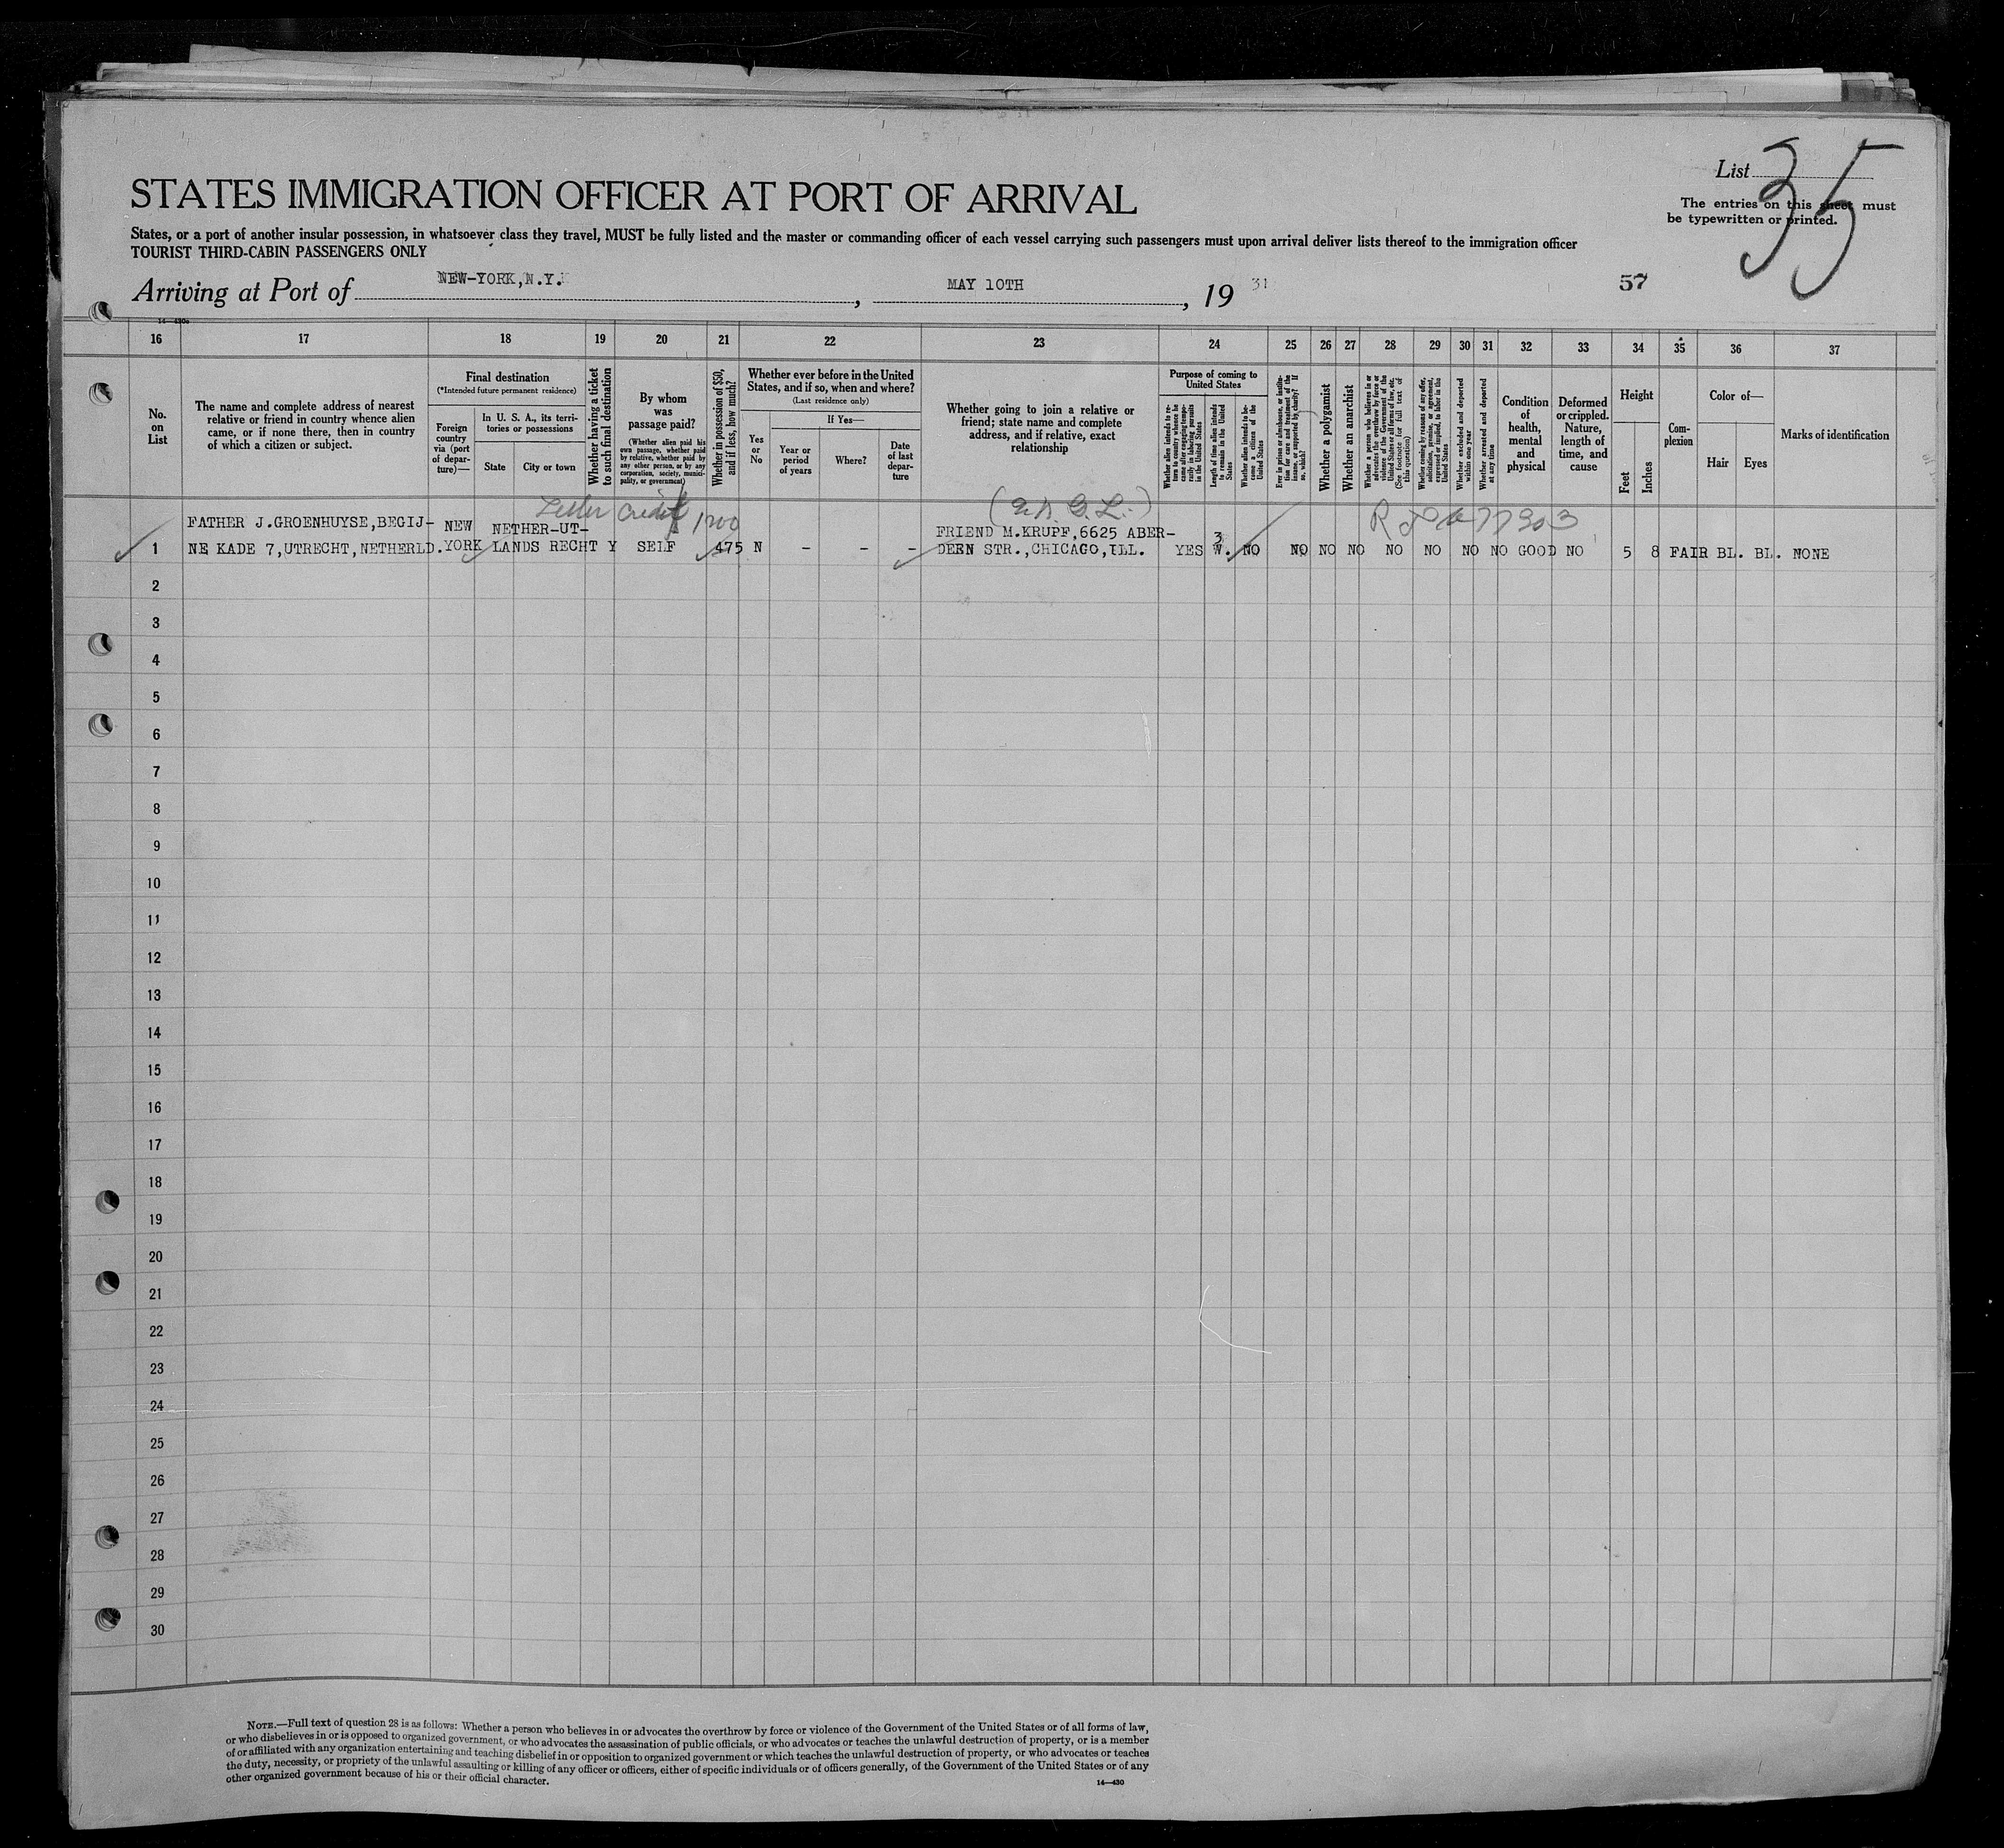 List 35
STATES IMMIGRATION OFFICER AT PORT OF ARRIVAL
The entries on this sheet must
be typewritten or printed.
States, or a port of another insular possession, in whatsoever class they travel, MUST be fully listed and the master or commanding officer of each vessel carrying such passengers must upon arrival deliver lists thereof to the immigration officer
TOURIST THIRD-CABIN PASSENGERS ONLY
Arriving at Port of NEW-YORK,N.Y. , MAY 10TH , 19 31
57
14—430a
16 17 18 19 20 21 22 23 24 25 26 27 28 29 30 31 32 33 34 35 36 37
No.
on
List
The name and complete address of nearest
relative or friend in country whence alien
came, or if none there, then in country
of which a citizen or subject.
Final destination
(*Intended future permanent residence)
Foreign
country
via (port
of depar-
ture)—
In U. S. A., its terri-
tories or possessions
State
City or town
Whether having a ticket
to such final destination
By whom
was
passage paid?
(Whether alien paid his
own passage, whether paid
by relative, whether paid by
any other person, or by any
corporation, society, munici-
pality, or government)
Whether in possession of $50,
and if less, how much?
Whether ever before in the United
States, and if so, when and where?
(Last residence only)
Yes
or
No
If Yes—
Year or
period
of years
Where?
Date
of last
depar-
ture
Whether going to join a relative or
friend; state name and complete
address, and if relative, exact
relationship
Purpose of coming to
United States
Whether alien intends to re-
turn to country whence he
came after engaging tempo-
rarily in laboring pursuits
in the United States
Length of time alien intends
to remain in the United
States
Whether alien intends to be-
come a citizen of the
United States
Ever in prison or almshouse, or institu-
tion for care and treatment of the
insane, or supported by charity? If
so, which?
Whether a polygamist
Whether an anarchist
Whether a person who believes in or
advocates the overthrow by force or
violence of the Government of the
United States or all forms of law, etc.
(See footnote for full text of
this question)
Whether coming by reasons of any offer,
solicitation, promise, or agreement,
expressed or implied, to labor in the
United States
Whether excluded and deported
within one year
Whether arrested and deported
at any time
Condition
of
health,
mental
and
physical
Deformed
or crippled.
Nature,
length of
time, and
cause
Height
Feet
Inches
Com-
plexion
Color of—
Hair
Eyes
Marks of identification
Letter credit 1200
FATHER J.GROENHUYSE,BEGIJ- NEW NETHER-UT- FRIEND M.KRUPF,6625 ABER- 3
1 NE KADE 7,UTRECHT,NETHERLD. YORK LANDS RECHT Y SELF 475 N - - - DEEN STR.,CHICAGO,ILL. YES W. NO NO NO NO NO NO NO NO GOOD NO 5 8 FAIR BL. BL. NONE
2
3
4
5
6
7
8
9
10
11
12
13
14
15
16
17
18
19
20
21
22
23
24
25
26
27
28
29
30
NOTE.—Full text of question 28 is as follows: Whether a person who believes in or advocates the overthrow by force or violence of the Government of the United States or of all forms of law,
or who disbelieves in or is opposed to organized government, or who advocates the assassination of public officials, or who advocates or teaches the unlawful destruction of property, or is a member
of or affiliated with any organization entertaining and teaching disbelief in or opposition to organized government or which teaches the unlawful destruction of property, or who advocates or teaches
the duty, necessity, or propriety of the unlawful assaulting or killing of any officer or officers, either of specific individuals or of officers generally, of the Government of the United States or of any
other organized government because of his or their official character.
14—430